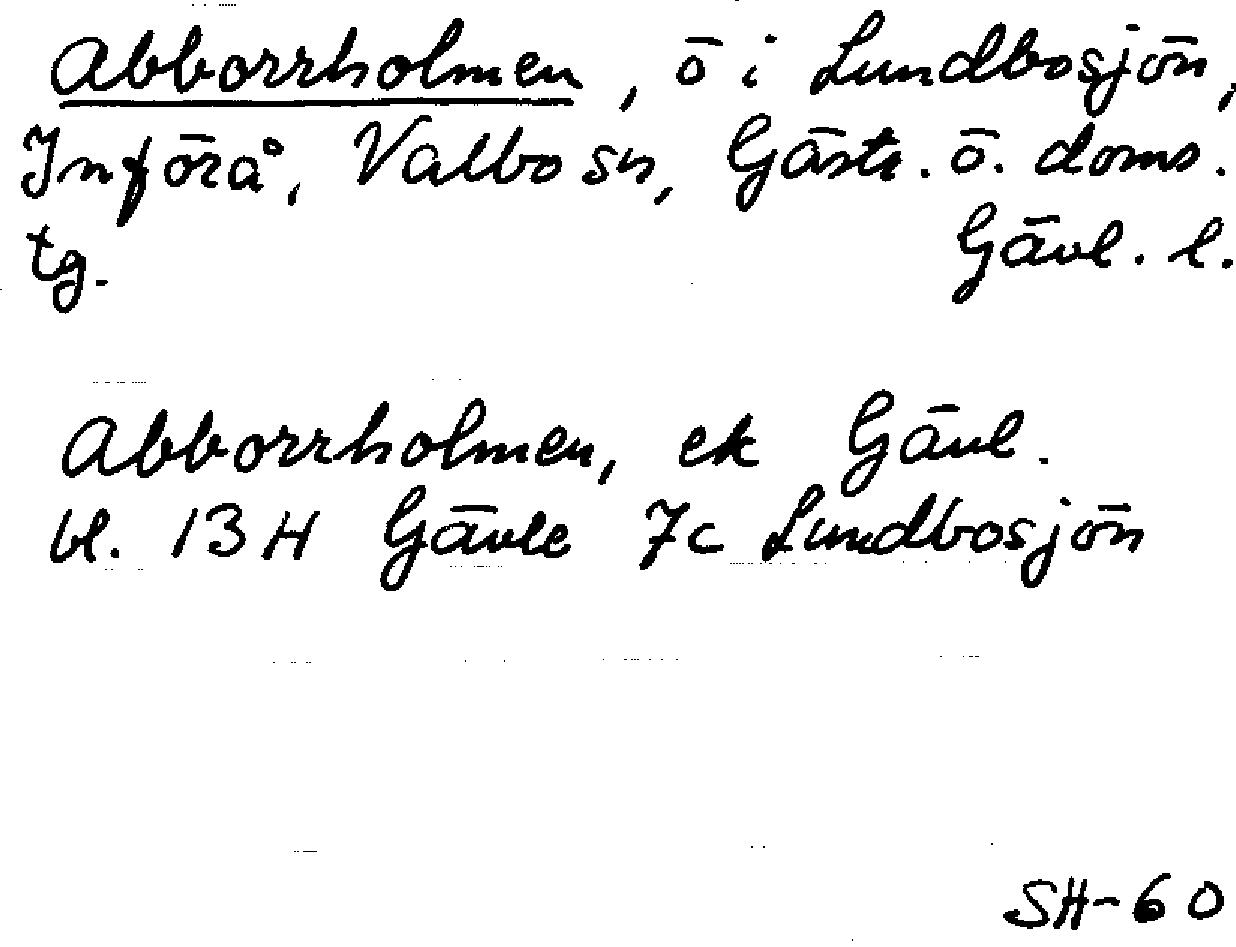 Abborrholmen, ö i Lundbosjön,
Införå, Valbo sn, Gästr. ö. doms.
tg. Gävl. l.
Abborrholmen, ek Gävl.
bl. 13H Gävle 7c Lundbosjön
SH-60